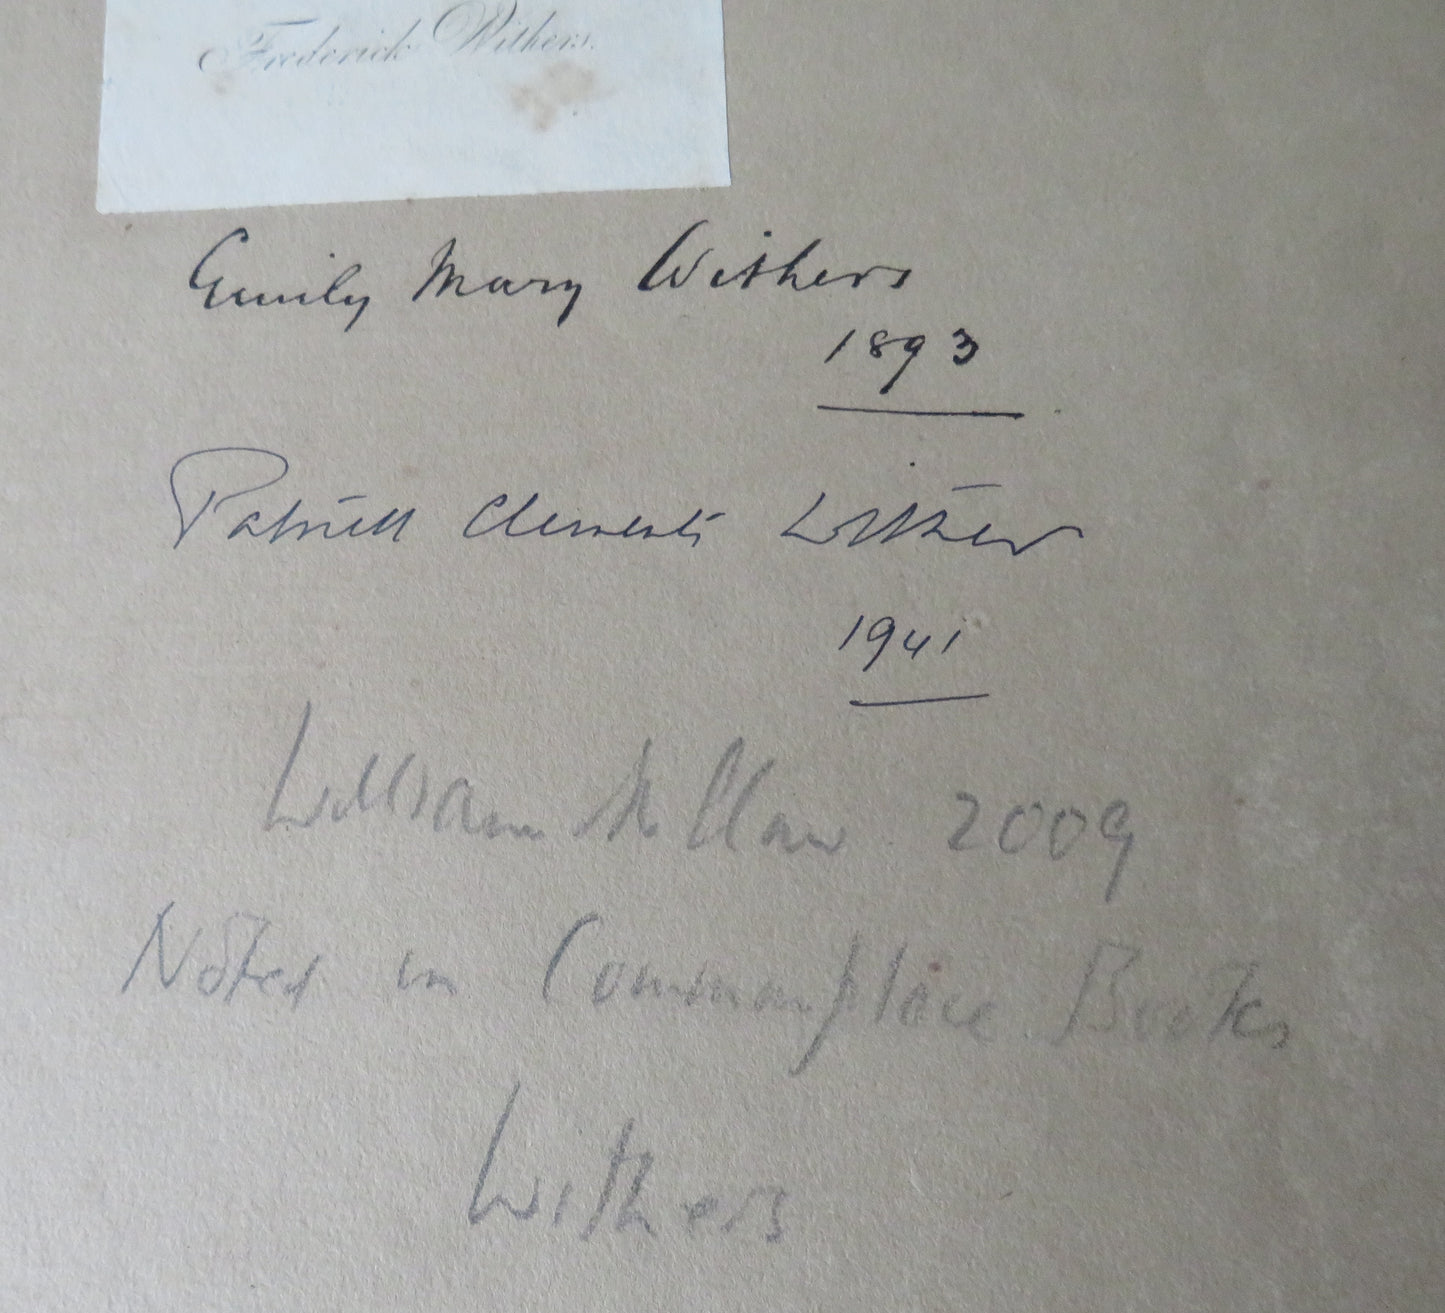 Frederick Withers.
Emily Mary Withers
1893
Patrick Clements Withers
1941
William 2009
Notes in Commonplace Books
Withers